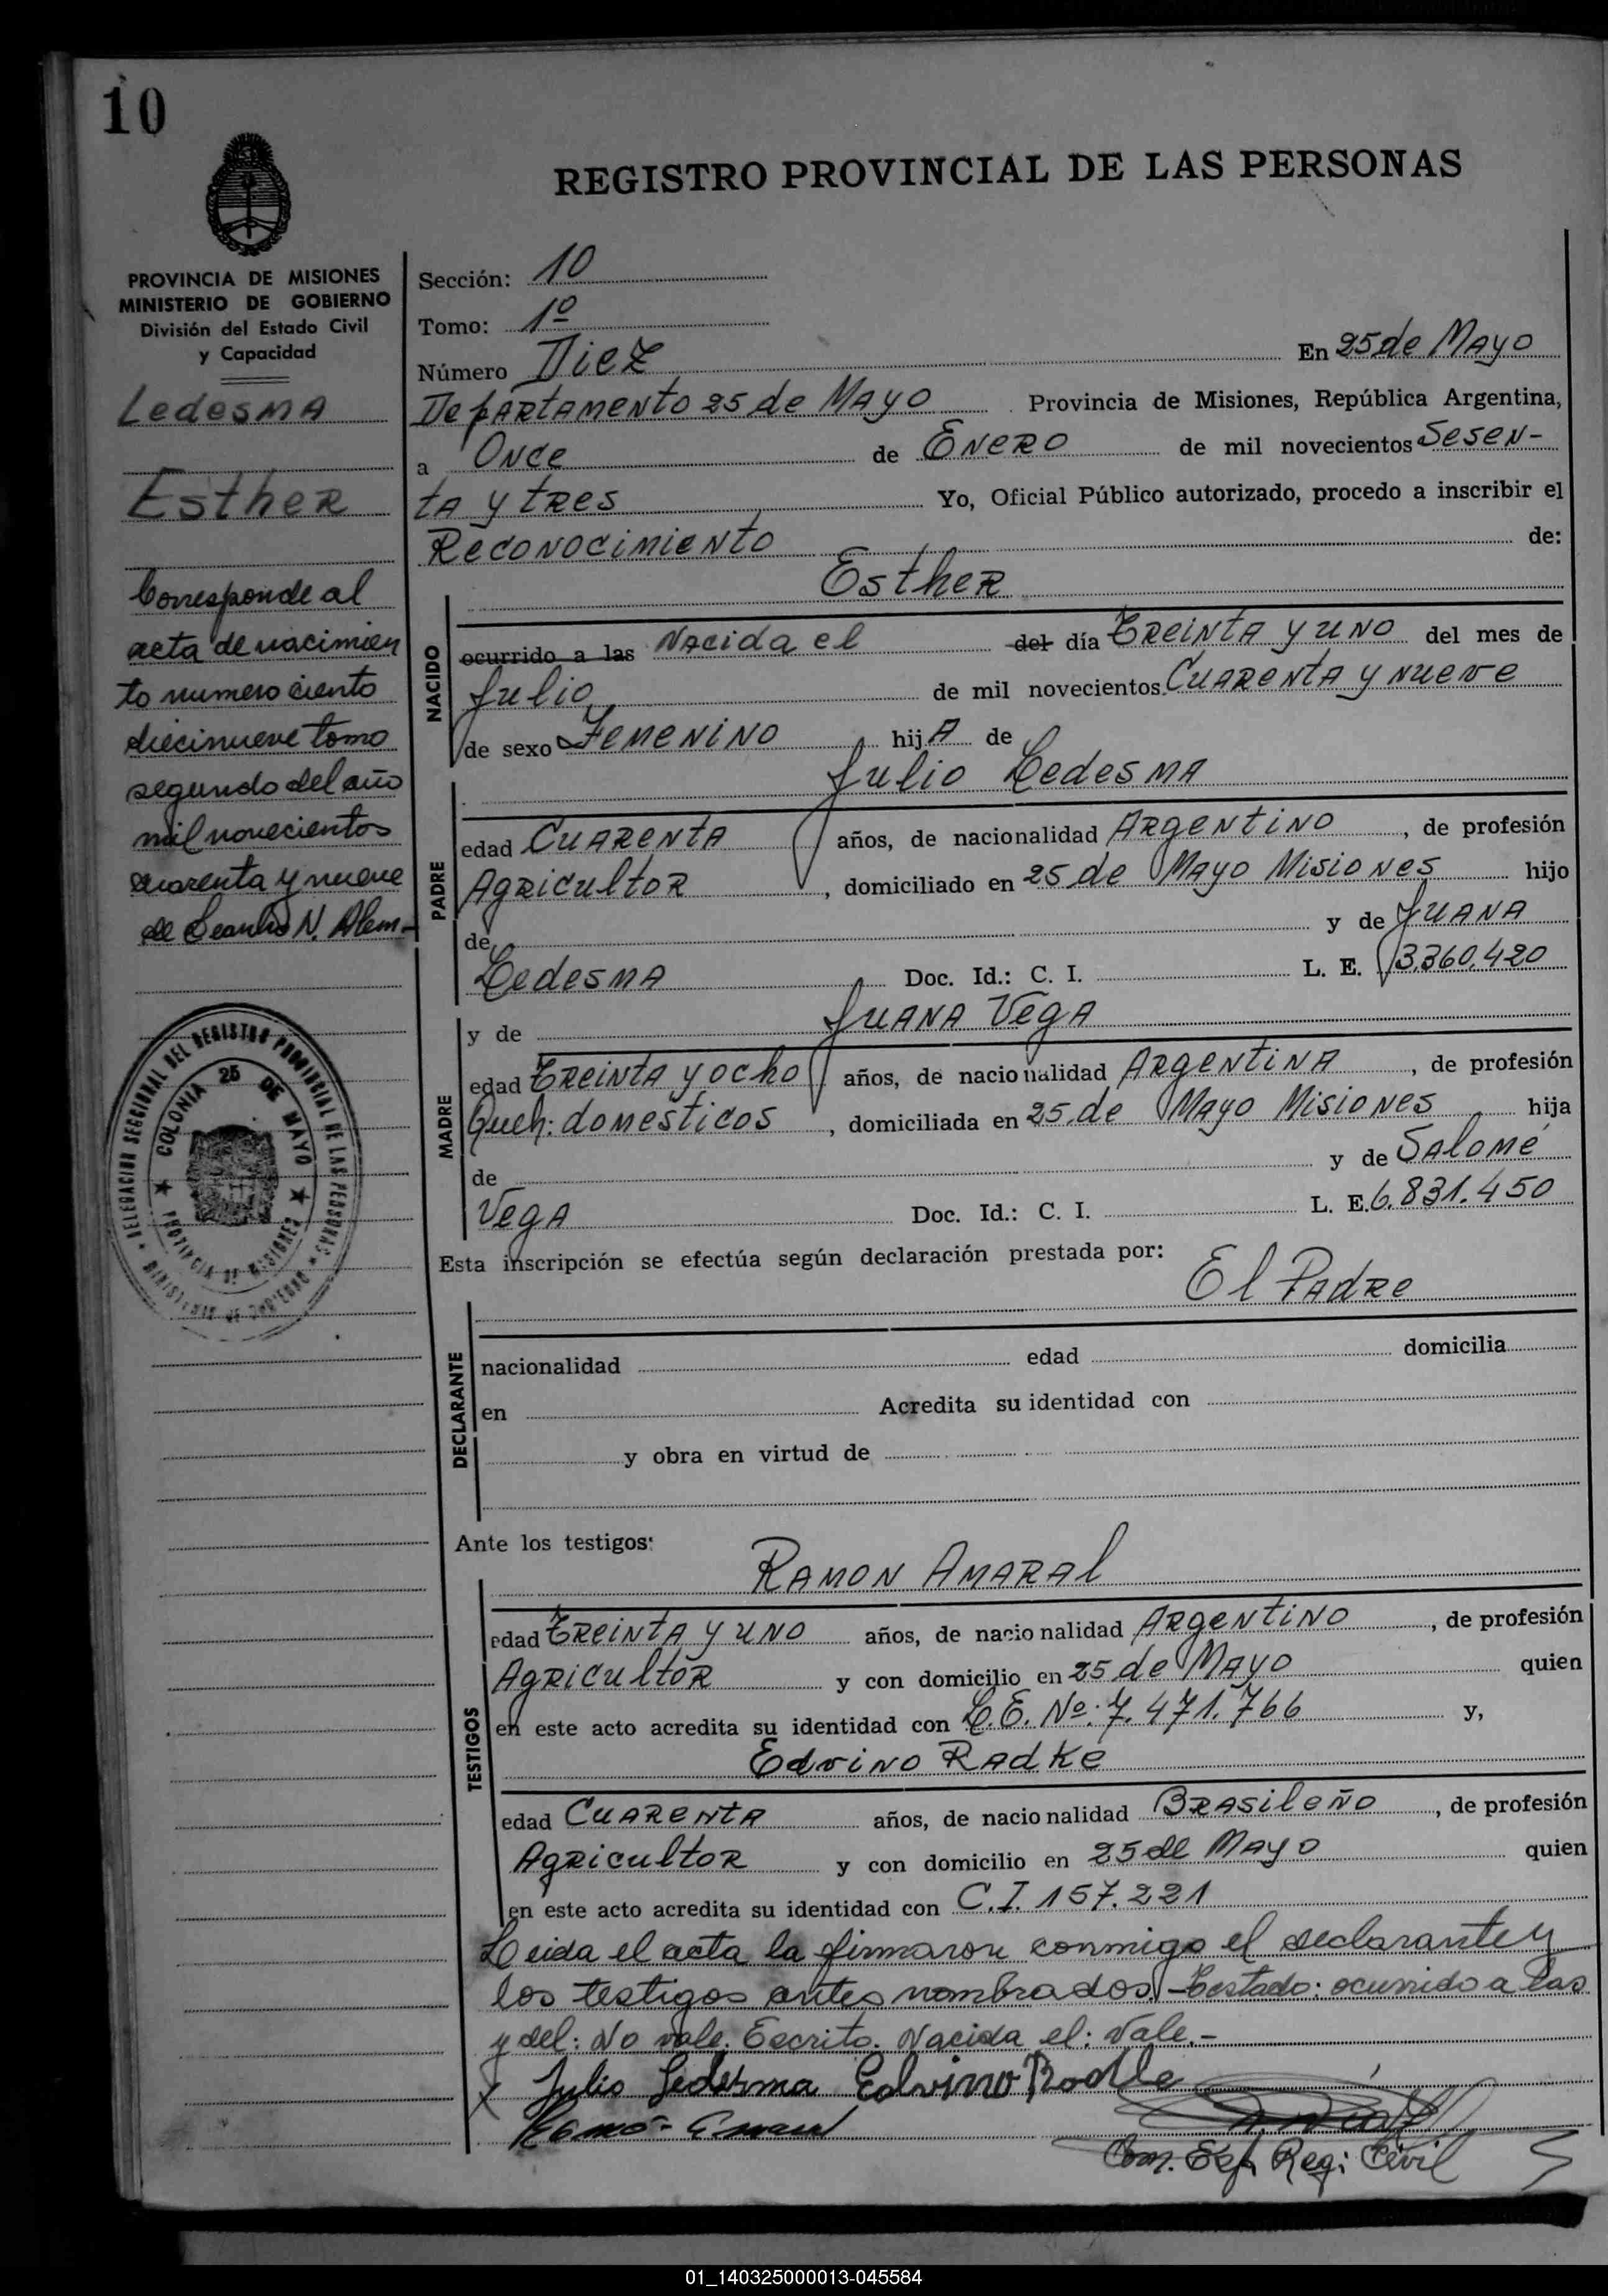 10
REGISTRO PROVINCIAL DE LAS PERSONAS
PROVINCIA DE MISIONES
MINISTERIO DE GOBIERNO
División del Estado Civil
y Capacidad
Ledesma
Esther
Corresponde al
acta de nacimien
to numero ciento
diecinueve tomo
segundo del año
mil novecientos
cuarenta y nueve
de Leandro N. Alem-
DELEGACION SECCIONAL DEL REGISTRO PROVINCIAL DE LAS PERSONAS
COLONIA 25 DE MAYO
PROVINCIA DE MISIONES
MINISTERIO DE GOBIERNO
Sección: 10
Tomo: 1º
Número Diez En 25 de Mayo
Departamento 25 de Mayo Provincia de Misiones, República Argentina,
a Once de Enero de mil novecientos Sesen-
ta y tres Yo, Oficial Público autorizado, procedo a inscribir el
Reconocimiento de:
Esther
NACIDO
ocurrido a las Nacida el del día Treinta y uno del mes de
Julio de mil novecientos Cuarenta y nueve
de sexo Femenino hija de
Julio Ledesma
PADRE
edad Cuarenta años, de nacionalidad Argentino, de profesión
Agricultor, domiciliado en 25 de Mayo Misiones hijo
de y de Juana
Ledesma Doc. Id.: C. I. L. E. 3.360.420
y de Juana Vega
MADRE
edad Treinta y ocho años, de nacionalidad Argentina, de profesión
Queh: domesticos, domiciliada en 25 de Mayo Misiones hija
de y de Salomé
Vega Doc. Id.: C. I. L. E. 6.831.450
Esta inscripción se efectúa según declaración prestada por:
El Padre
DECLARANTE
nacionalidad edad domicilia
en Acredita su identidad con
y obra en virtud de
Ante los testigos:
Ramon Amaral
TESTIGOS
edad Treinta y uno años, de nacionalidad Argentino, de profesión
Agricultor y con domicilio en 25 de Mayo quien
en este acto acredita su identidad con L.E. Nº: 7.471.766 y,
Edvino Radke
edad Cuarenta años, de nacionalidad Brasileño, de profesión
Agricultor y con domicilio en 25 de Mayo quien
en este acto acredita su identidad con C.I. 157.221
Leida el acta la firmaron conmigo el declarante y
los testigos antes nombrados.-Testado: ocurrido a las
y del: No vale. Escrito. Nacida el: Vale.-
Julio Ledesma Edvino Radke
Com. Esp. Reg: Civil
01_140325000013-045584